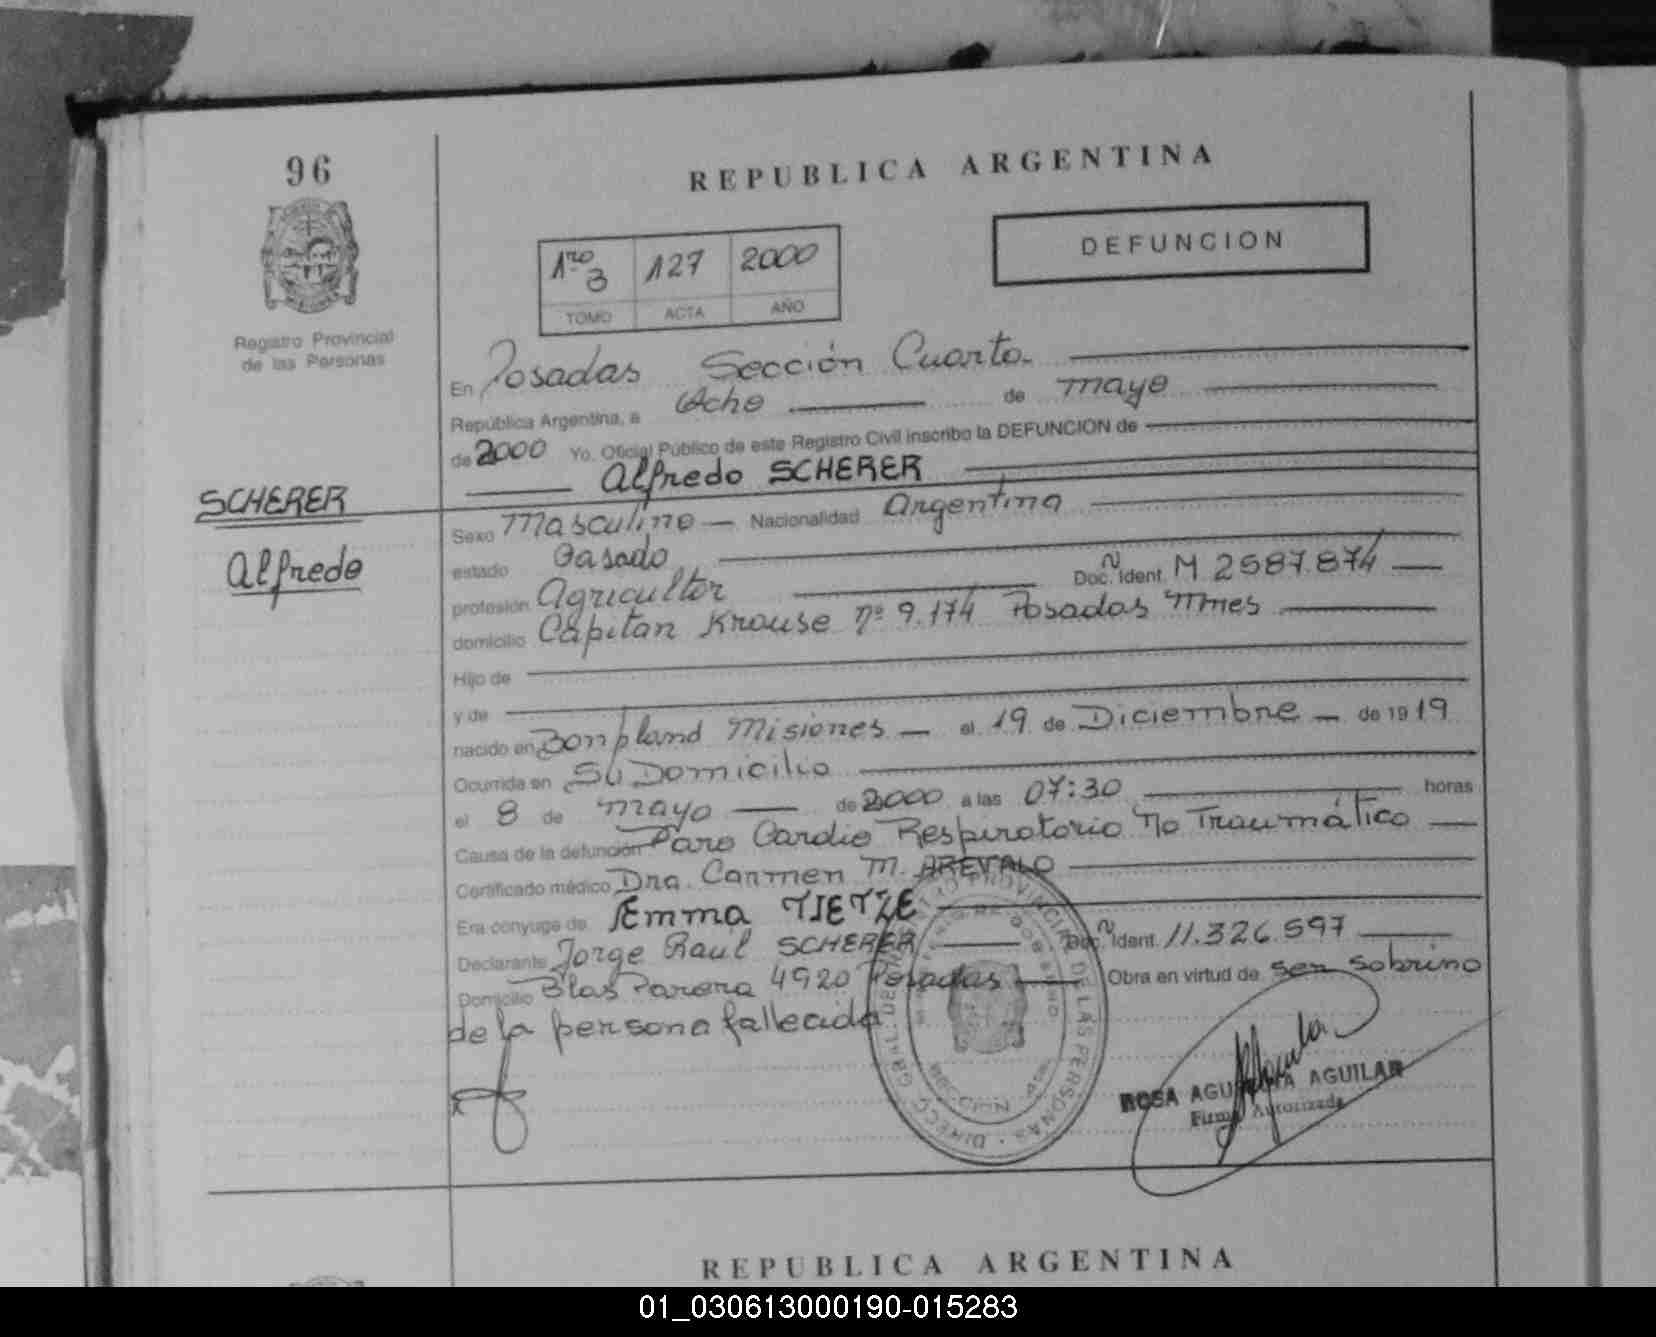 96
REPUBLICA ARGENTINA
DEFUNCION
1ro 3 127 2000
TOMO ACTA AÑO
Registro Provincial
de las Personas
En Posadas Sección Cuarta
República Argentina, a Ocho de mayo
de 2000 Yo, Oficial Público de este Registro Civil inscribo la DEFUNCION de
Alfredo SCHERER
SCHERER
Alfredo
Sexo Masculino Nacionalidad Argentina
estado Casado
profesión Agricultor Doc. Ident. M 2587.874
domicilio Capitan Krause nº 9.174 Posadas Mnes
Hijo de
y de
nacido en Bonpland Misiones el 19 de Diciembre de 1919
Ocurrida en Su Domicilio
el 8 de mayo de 2000 a las 07:30 horas
Causa de la defunción Paro Cardio Respiratorio No Traumático
Certificado médico Dra. Carmen M. AREVALO
Era cónyuge de Emma TIETZE
Declarante Jorge Raul SCHERER Doc. Ident. 11.326.597
Domicilio Blas Parera 4920 Posadas Obra en virtud de ser sobrino
de la persona fallecida
ROSA AGUILAR
Firma Autorizada
REPUBLICA ARGENTINA
01_030613000190-015283